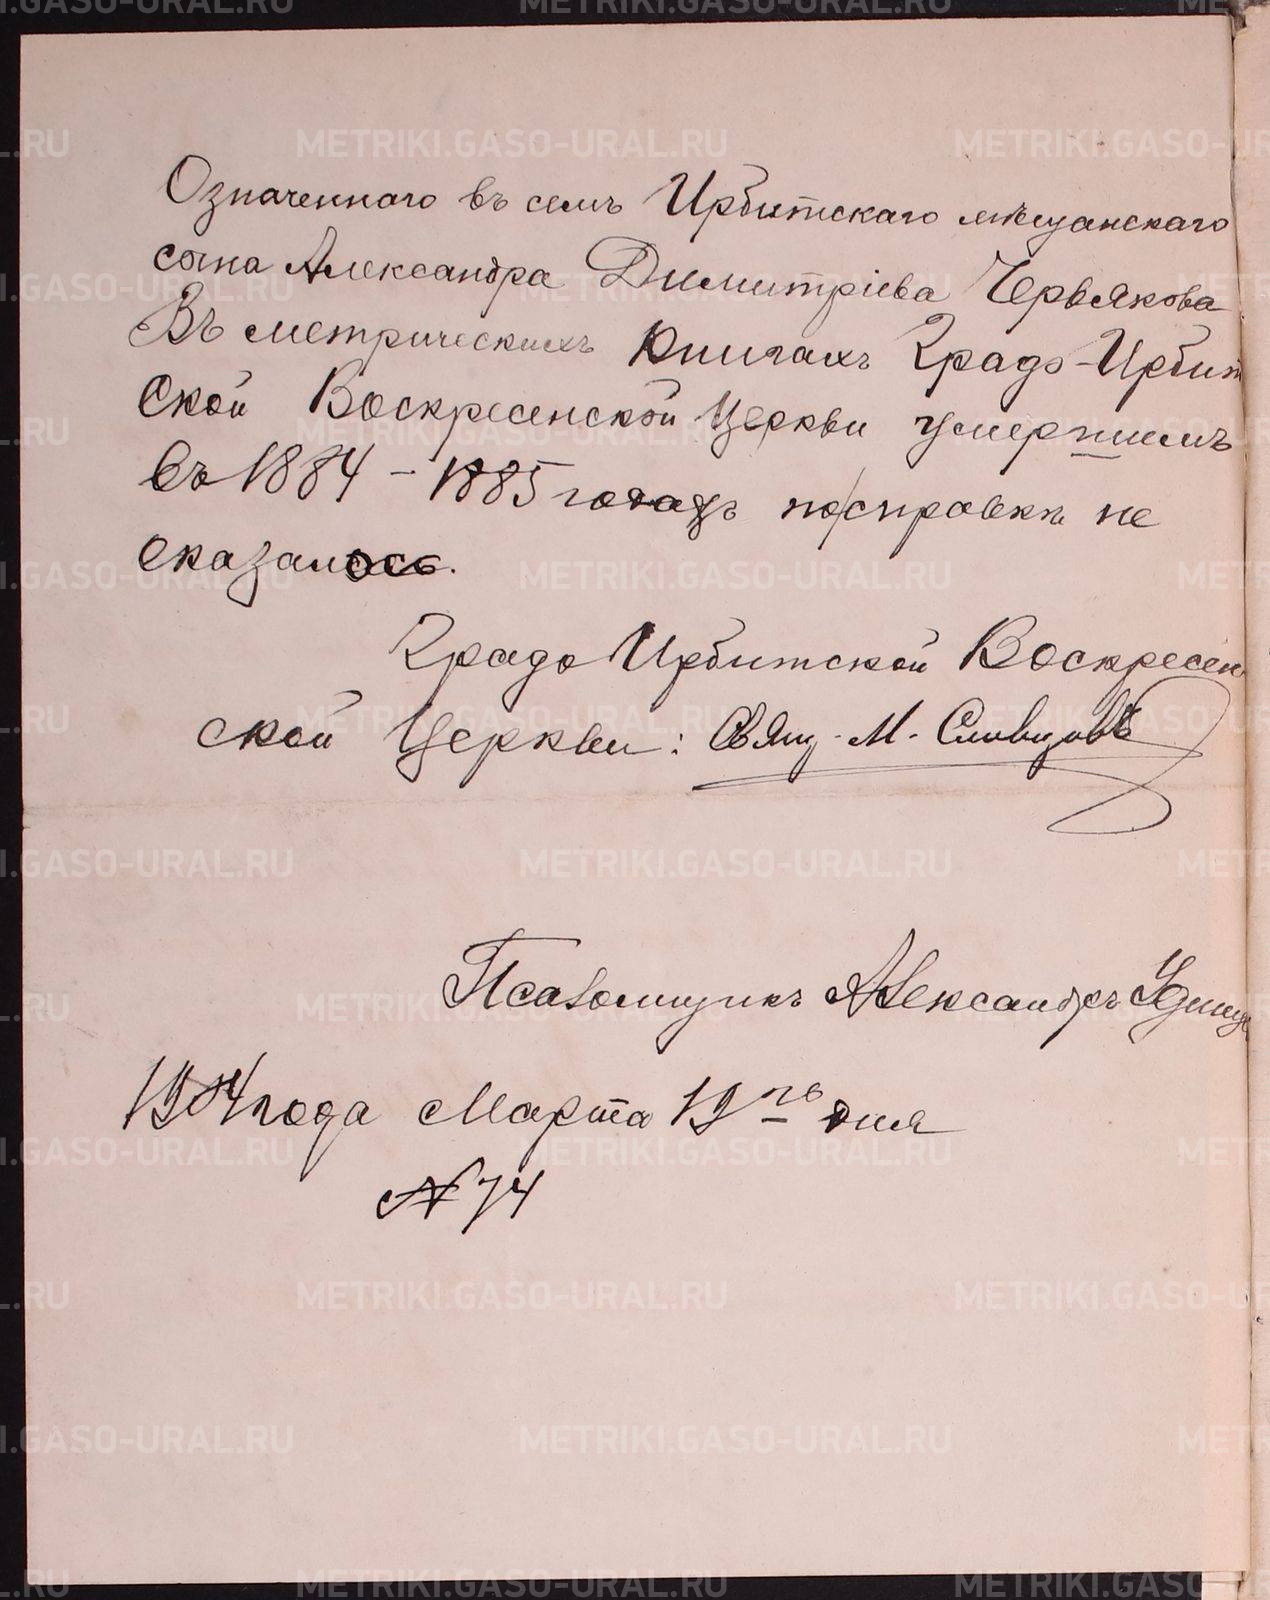 Означеннаго въ семъ Ирбитскаго мѣщанскаго
сына Александра Димитріева Червякова
Въ метрическихъ книгахъ Градо-Ирбит
ской Воскресенской Церкви умершимъ
въ 1884 - 1885 годахъ по справкѣ не
оказалось.
Градо Ирбитской Воскресен
ской Церкви: Свящ. М. Словцовъ
Псаломщикъ Александръ
1904 года Марта 19 го дня
№ 74
METRIKI.GASO-URAL.RU